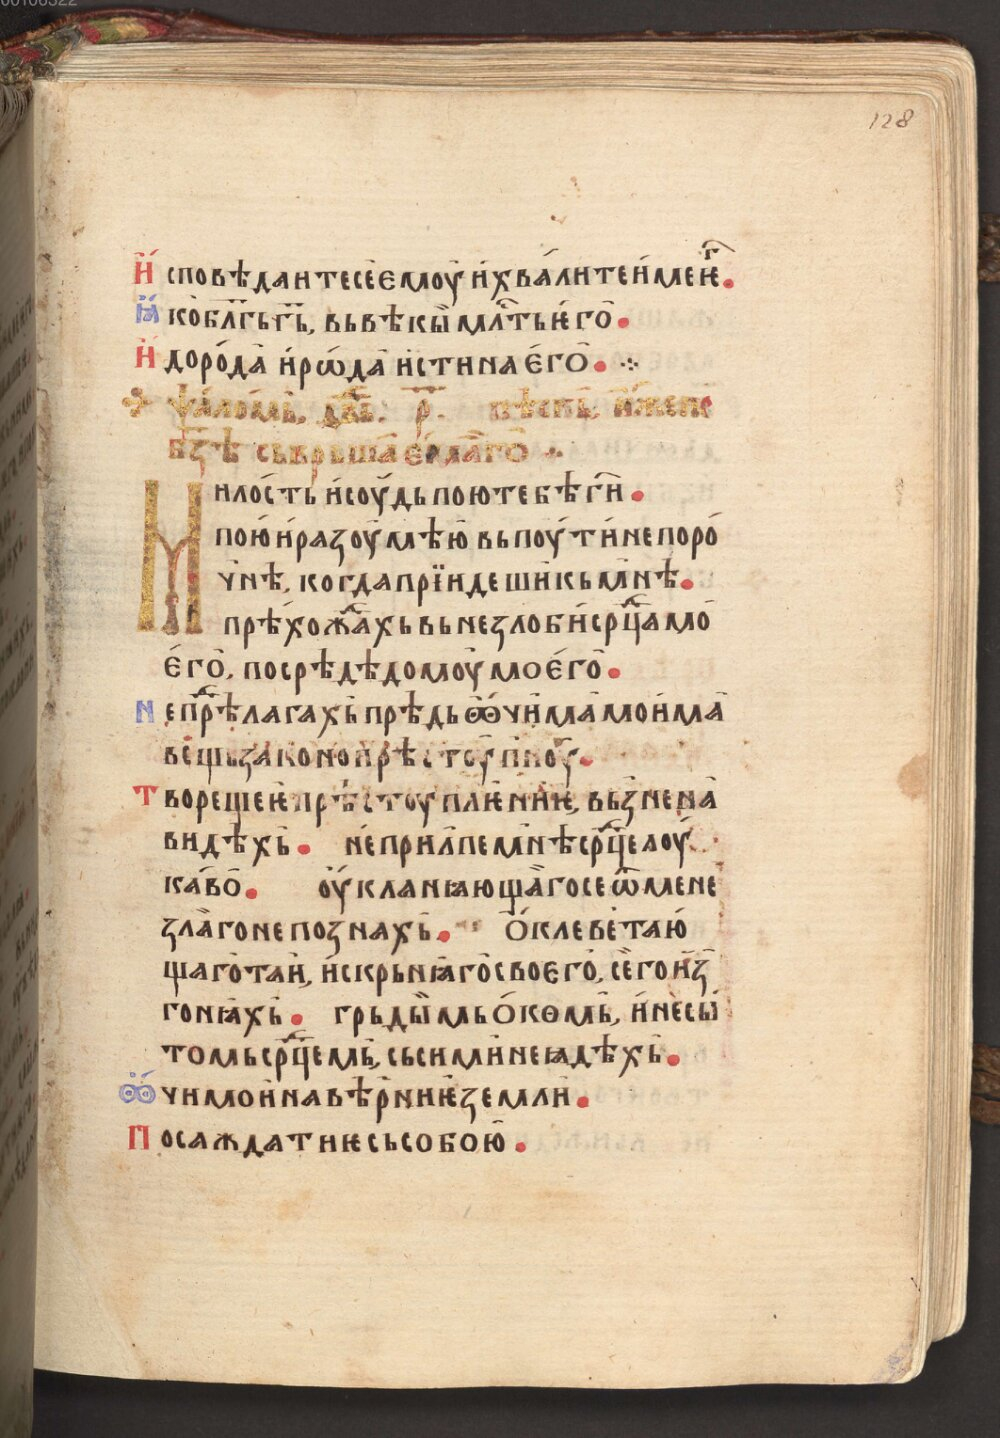 00106322
128
И҆споведаите се е҆моу и҆ хва́лите и҆ме ѥ҆гⷪ҇.
Ꙗ҆ко бл҃гь г҃ь, вь вѣкы мл҇ть ѥ҆го.
И҆ до ро́да и҆ рѡ́да и҆стина е҆го ⁘
ѱа́ломь, дв҃дь. р҃.
сьврьша
Милость и҆ соу́дь пою тебѣ гⷭ҇и.
пою и҆ разоумѣю вь поути непоро
чнѣ, когда прїидеши кь мнѣ.
прѣхождаⷯхь вь незлоби ср҃ца мо
е҆го, посрѣдѣ домоу моѥ҆го.
Не прѣⷣлагахь прѣдь ꙍ҆чима моима
вещь законопрѣстоупноу.
Творещеѥ прѣстоуплѥниѥ, вьзнена
видѣхь. не прилпе мнѣ срⷣце лоу
каво. оу҆кланꙗющаго се ѿ мене
злаго не познахь. ѡ҆клеветаю
щаго таи, и҆скрьнꙗго своего, сего и҆з
гонꙗхь. грьдыⷨмь ѻ҆комь, и҆ несы
томь срⷣцемь, сь сими не ꙗдѣхь.
Ѻ҆чи мои на вѣрниѥ земли.
Посаждати ѥ сь собою.